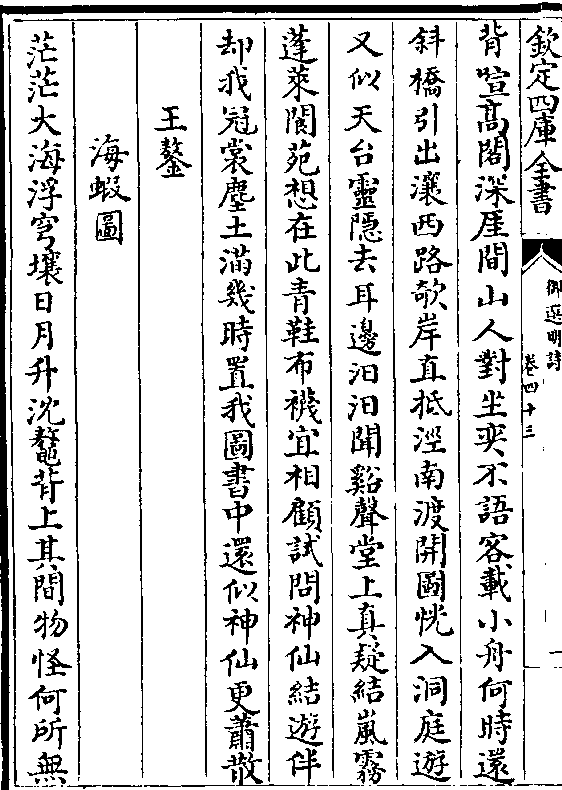 欽定四庫全書
御選明詩
卷四十三
背喧高閣深厓間山人對坐奕不語客載小舟何時還
斜橋引出瀼西路欹岸直抵涇南渡開圖恍入洞庭遊
又似天台靈隱去耳邊汨汨聞谿聲堂上真疑結嵐霧
蓬萊閬苑想在此青鞋布襪宜相顧試問神仙結遊伴
却我冠裳塵土滿幾時置我圖書中還似神仙更蕭散
王鏊
海蝦圖
茫茫大海浮穹壤日月升沈鼇背上其間物怪何所無